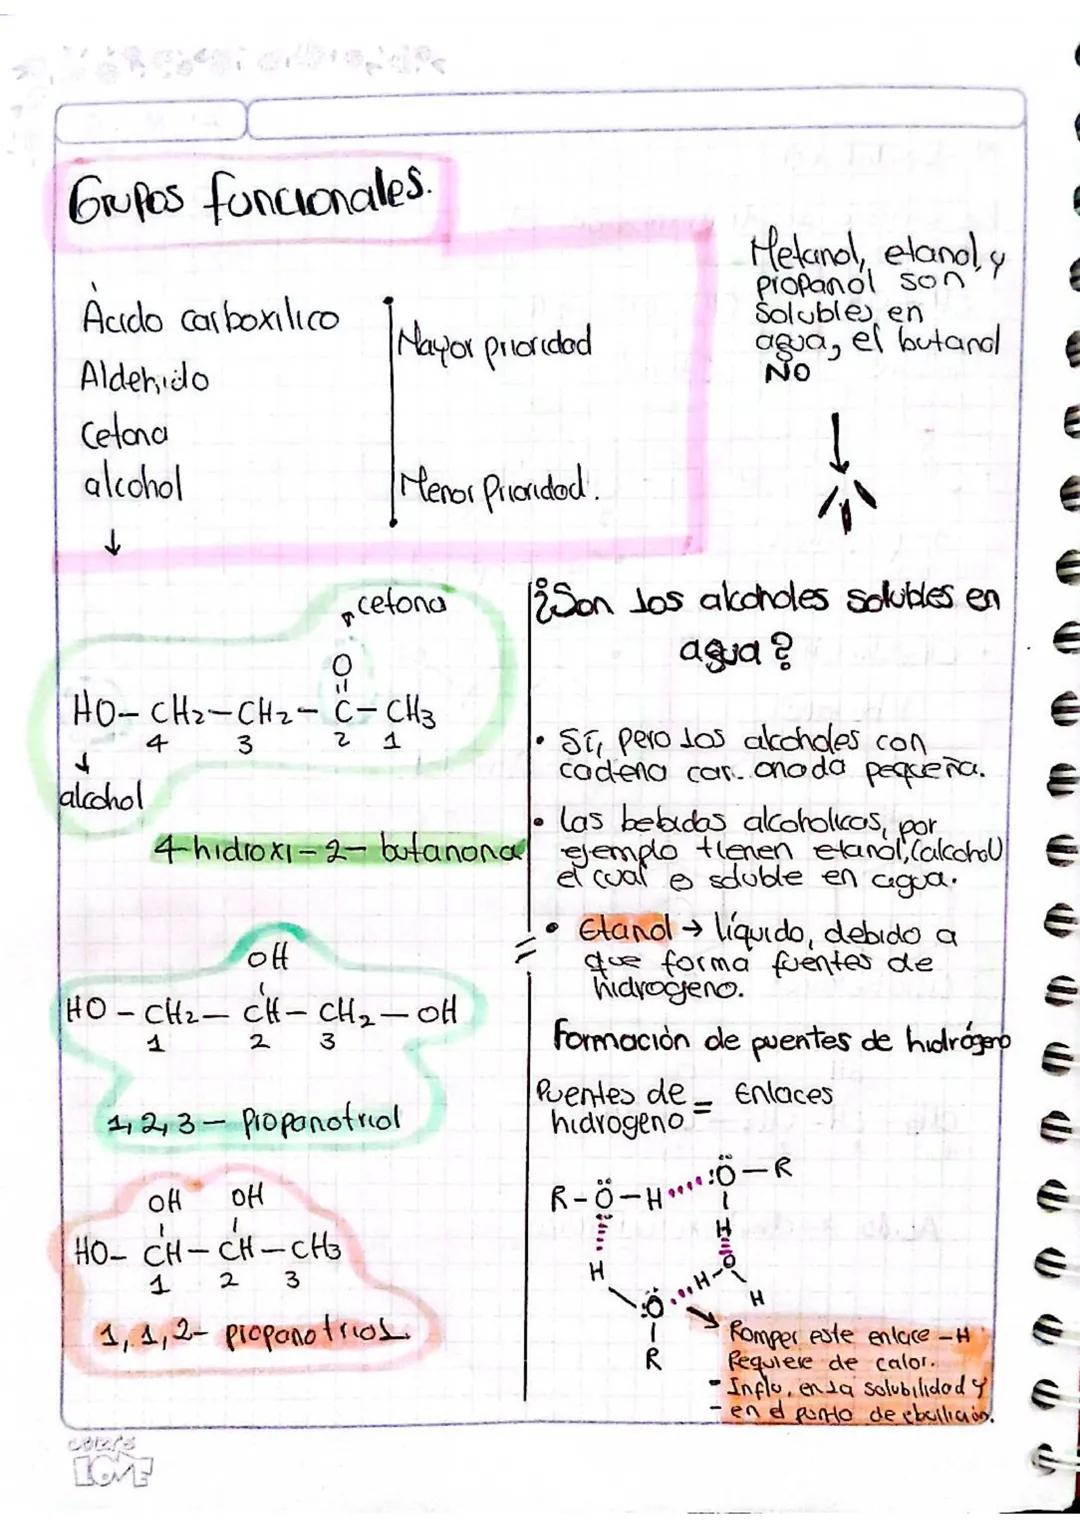 Grupos funcionales.
Ácido carboxilico
Aldehido
Cetona
alcohol
↓
Mayor prioridad
Menor Prioridad.
Metanol, etanol, y
propanol son
solubles en
agua, el butanol
NO
cetona
O
HO-CH2-CH2-C-CH3
4 3 2 1
alcohol
4-hidroxi-2-butanona
OH
HO-CH2-CH-CH2-OH
1 2 3
1,2,3-Propanotriol
OH OH
HO-CH-CH-CH3
1 2 3
1,1,2-propanotriol
¿Son los alcoholes solubles en
agua?
• Sí, pero los alcoholes con
cadena car onada pequeña.
• las bebidas alcoholicas, por
ejemplo tienen etanol, (alcohol)
el cual es soluble en agua.
• Etanol → líquido, debido a
que forma fuentes de
hidrogeno.
Formación de puentes de hidrógeno
Puentes de = Enlaces
hidrogeno
R-Ö-H :Ö-R
H H
O
H H
:O
R
Romper este enlace -H
Requiere de calor.
- Influ. en la solubilidad y
- en el punto de ebullición.
LOVE